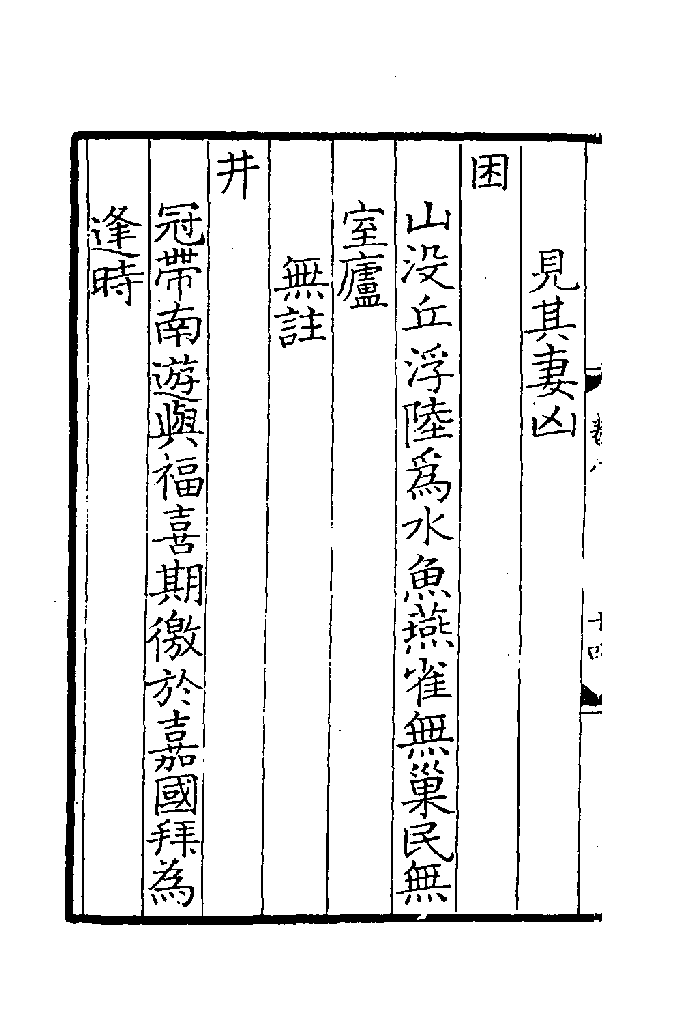 見其妻凶
困
山没丘浮陸爲水魚燕雀無巢民無
室廬
無註
井
冠帶南遊與福喜期徼於嘉國拜為
逢時
十四